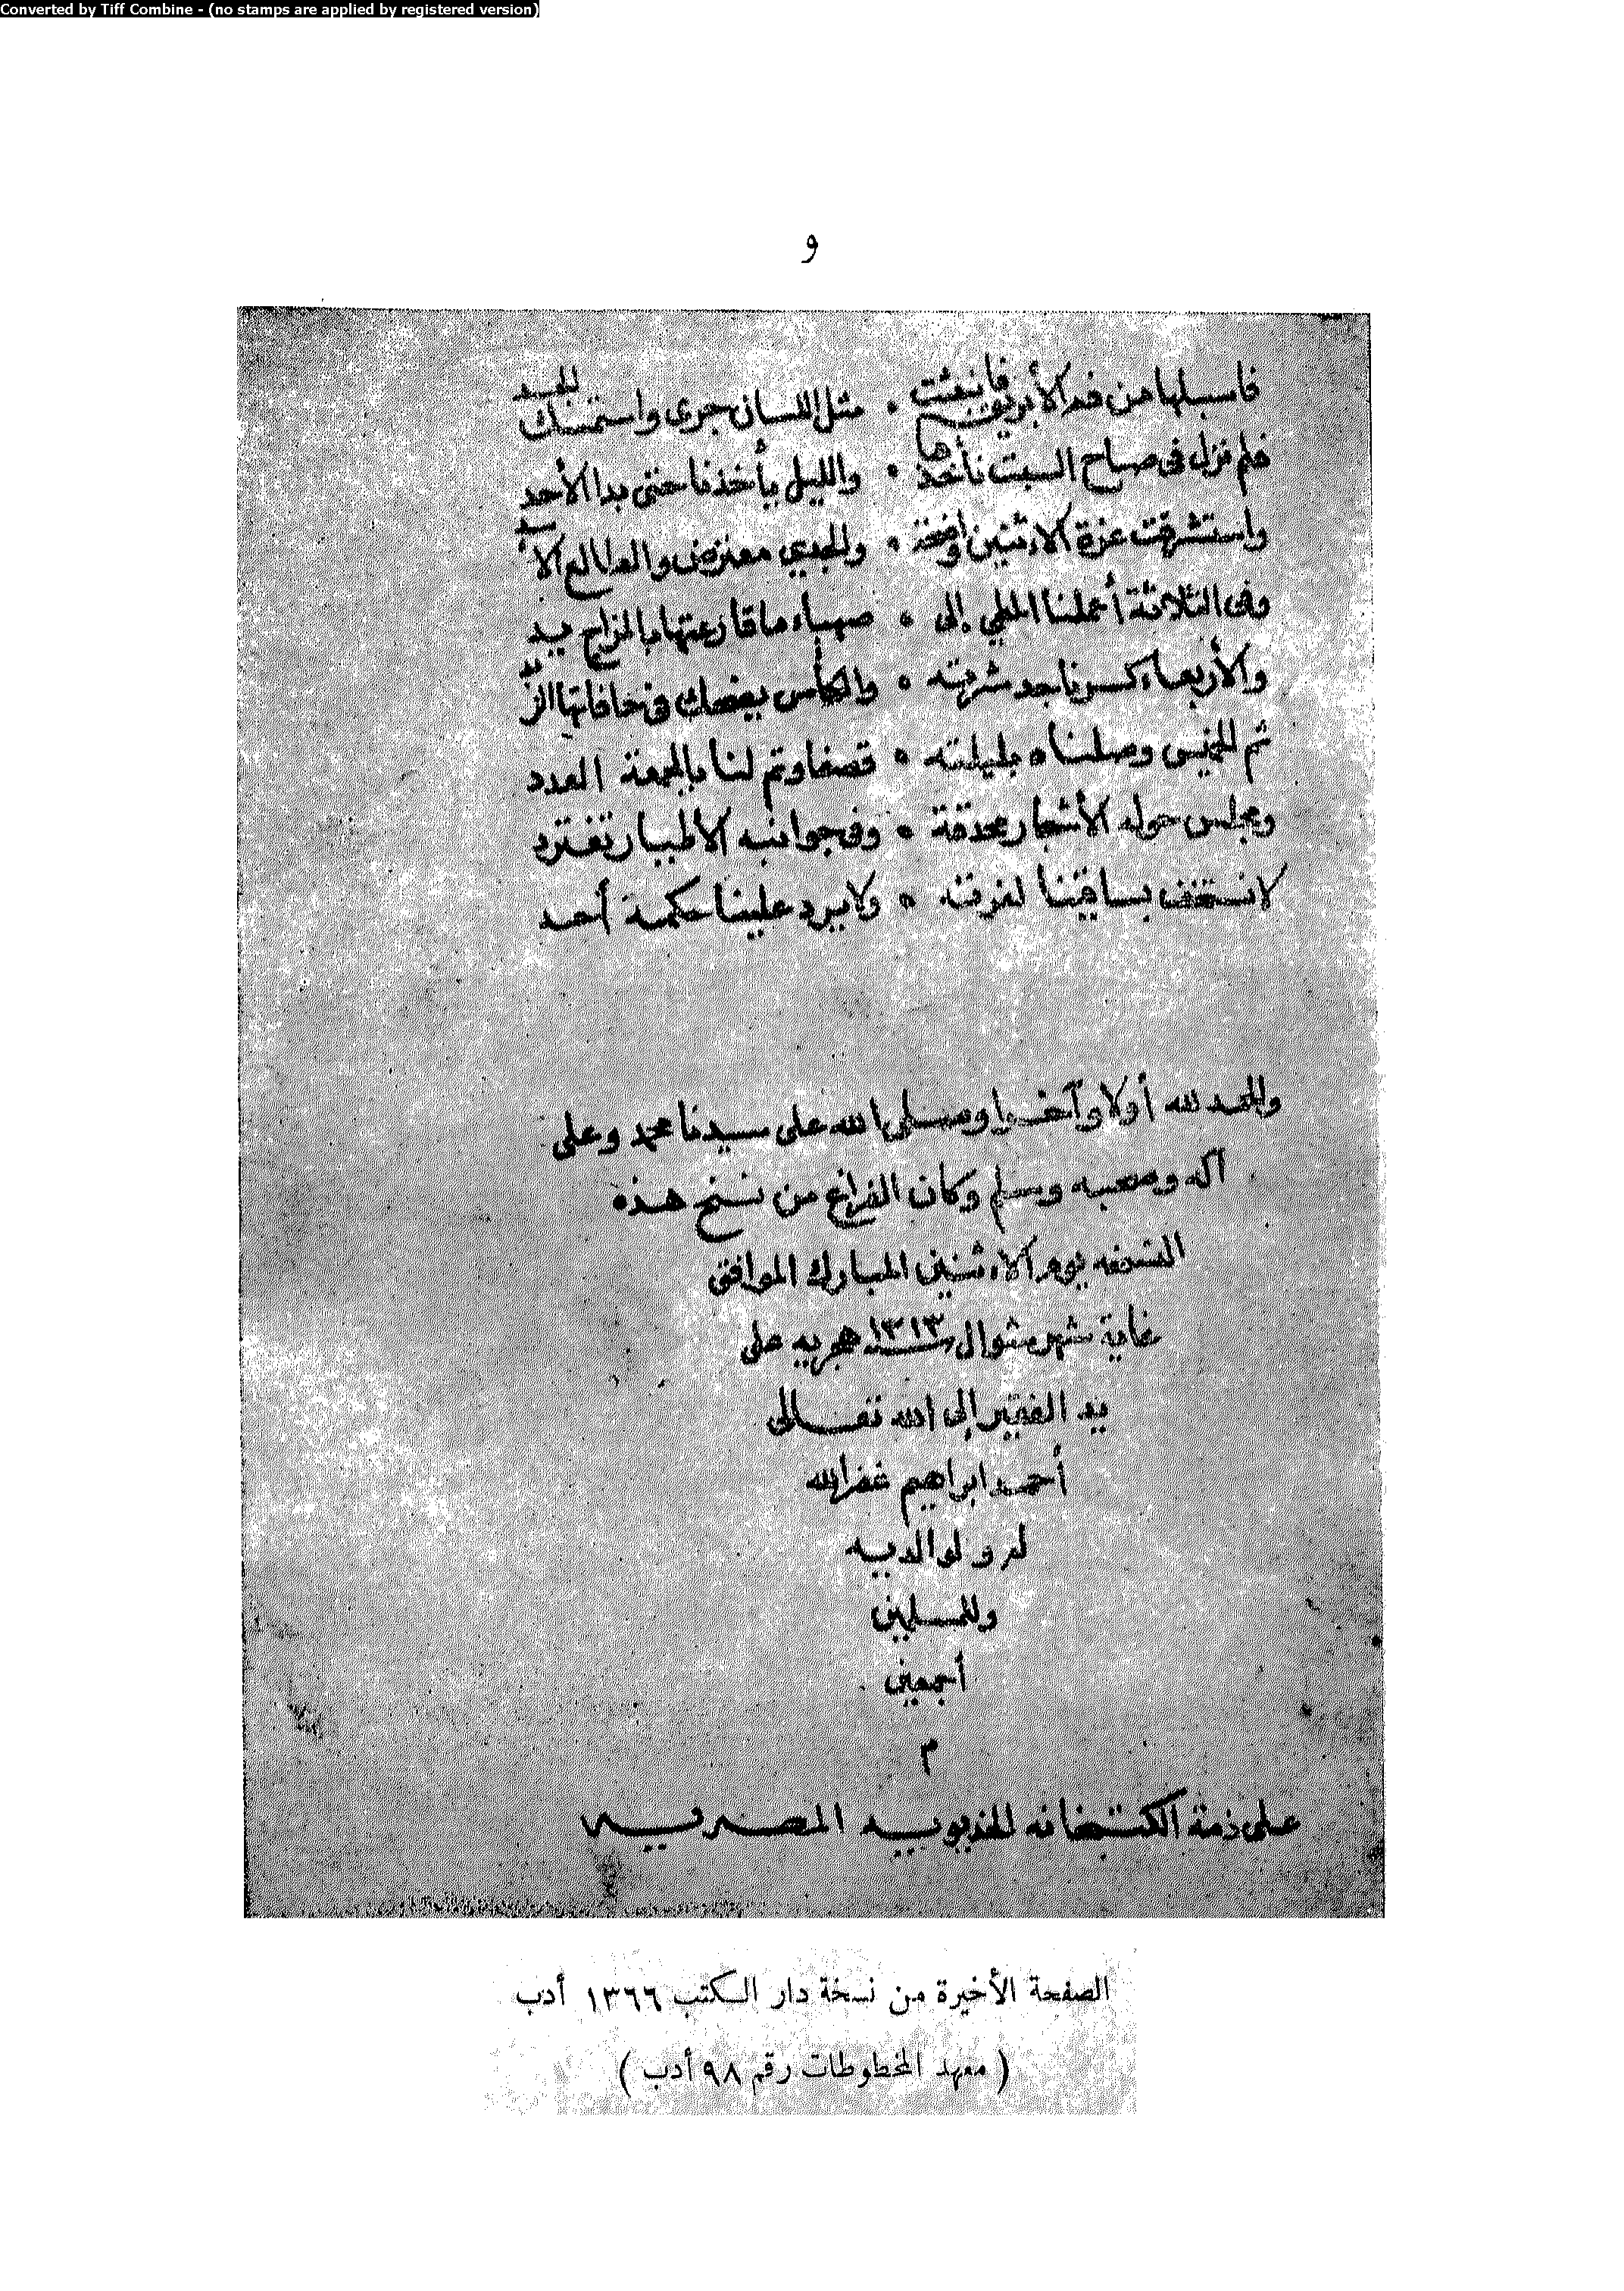 Converted by Tiff Combine - (no stamps are applied by registered version)
و
فاسبلها من فم الأبريق فانبعثت • مثل اللسان جرى واستمسك الجسد
فلم نزل فى صباح السبت نأخذها • والليل يأخذنا حتى بدا الأحد
واستشرفت غرة الاثنين واضحة • والجدي معترض والطالع الأسد
وفى الثلاثة أعملنا المطي إلى • صهباء ما قارعتها بالمزاج يد
والأربعاء كسرنا حد شرته • والكأس يضحك فى حافاتها الزبد
ثم الخميس وصلناه بليلته • قصفا وتم لنا بالجمعة العدد
ومجلس حوله الأشجار محدقة • وفى جوانبه الأطيار تغترد
لا نستخف بساقينا لغرته • ولا يرد علينا حكمه أحد
والحمد لله أولا وآخرا وصلى الله على سيدنا محمد وعلى
آله وصحبه وسلم وكان الفراغ من نسخ هذه
النسخه يوم الاثنين المبارك الموافق
غاية شهر شوال سنة ١٣١٣ هجريه على
يد الفقير إلى الله تعالى
أحمد ابراهيم غفر الله
له ولوالديه
وللمسلمين
أجمعين
م
على ذمة الكتبخانه الخديويه المصريه
الصفحة الأخيرة من نسخة دار الكتب ١٣٦٦ أدب
( معهد المخطوطات رقم ٩٨ أدب )